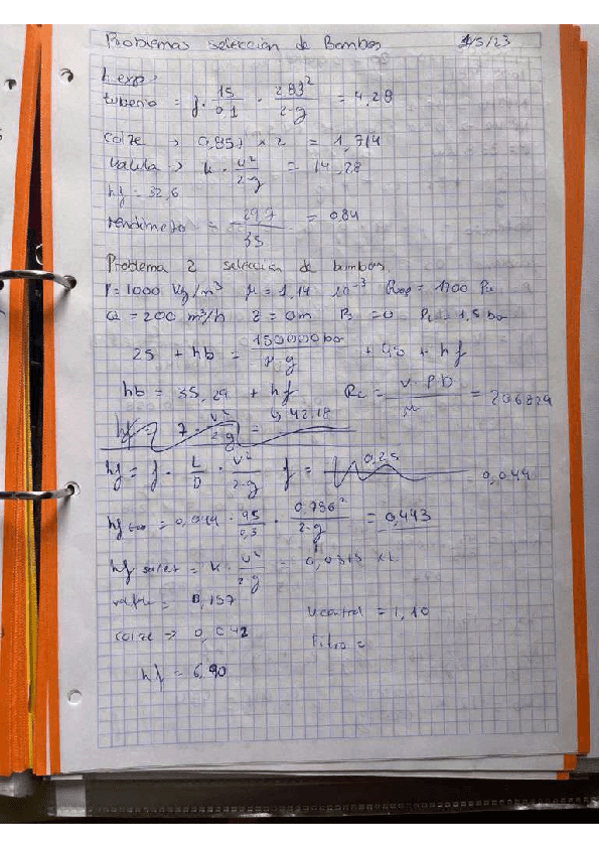 Problemas selección de Bombas 1/5/23
1 exp:
tuberia = f · 15/0,1 · 2,83²/2·g = 4,28
codze → 0,857 x 2 = 1,714
Valvula → k · v²/2·g = 14,28
hf = 32,6
rendimeto = 297/35 = 0,84
Problema 2 selección de bombas.
ρ = 1000 kg/m³ μ = 1,14 10⁻³ = 1700 Pa
Q = 200 m³/h z = 0m P = 0 = 1,5 bar
25 + hb = 150000 / ·g + 40 + hf
hb = 35,29 + hf Re = v·ρ·D/μ = 206829
hf v²/2·g =
hf = f · L/D · v²/2·g f = 0,25 0,044
hf = 0,044 · 95/0,3 · 0,786²/2·g = 0,443
hf = k · v²/2·g = 0,0315 x 2
= 0,157 V control = 1,10
codze → 0,042 Filtro =
hf = 6,90